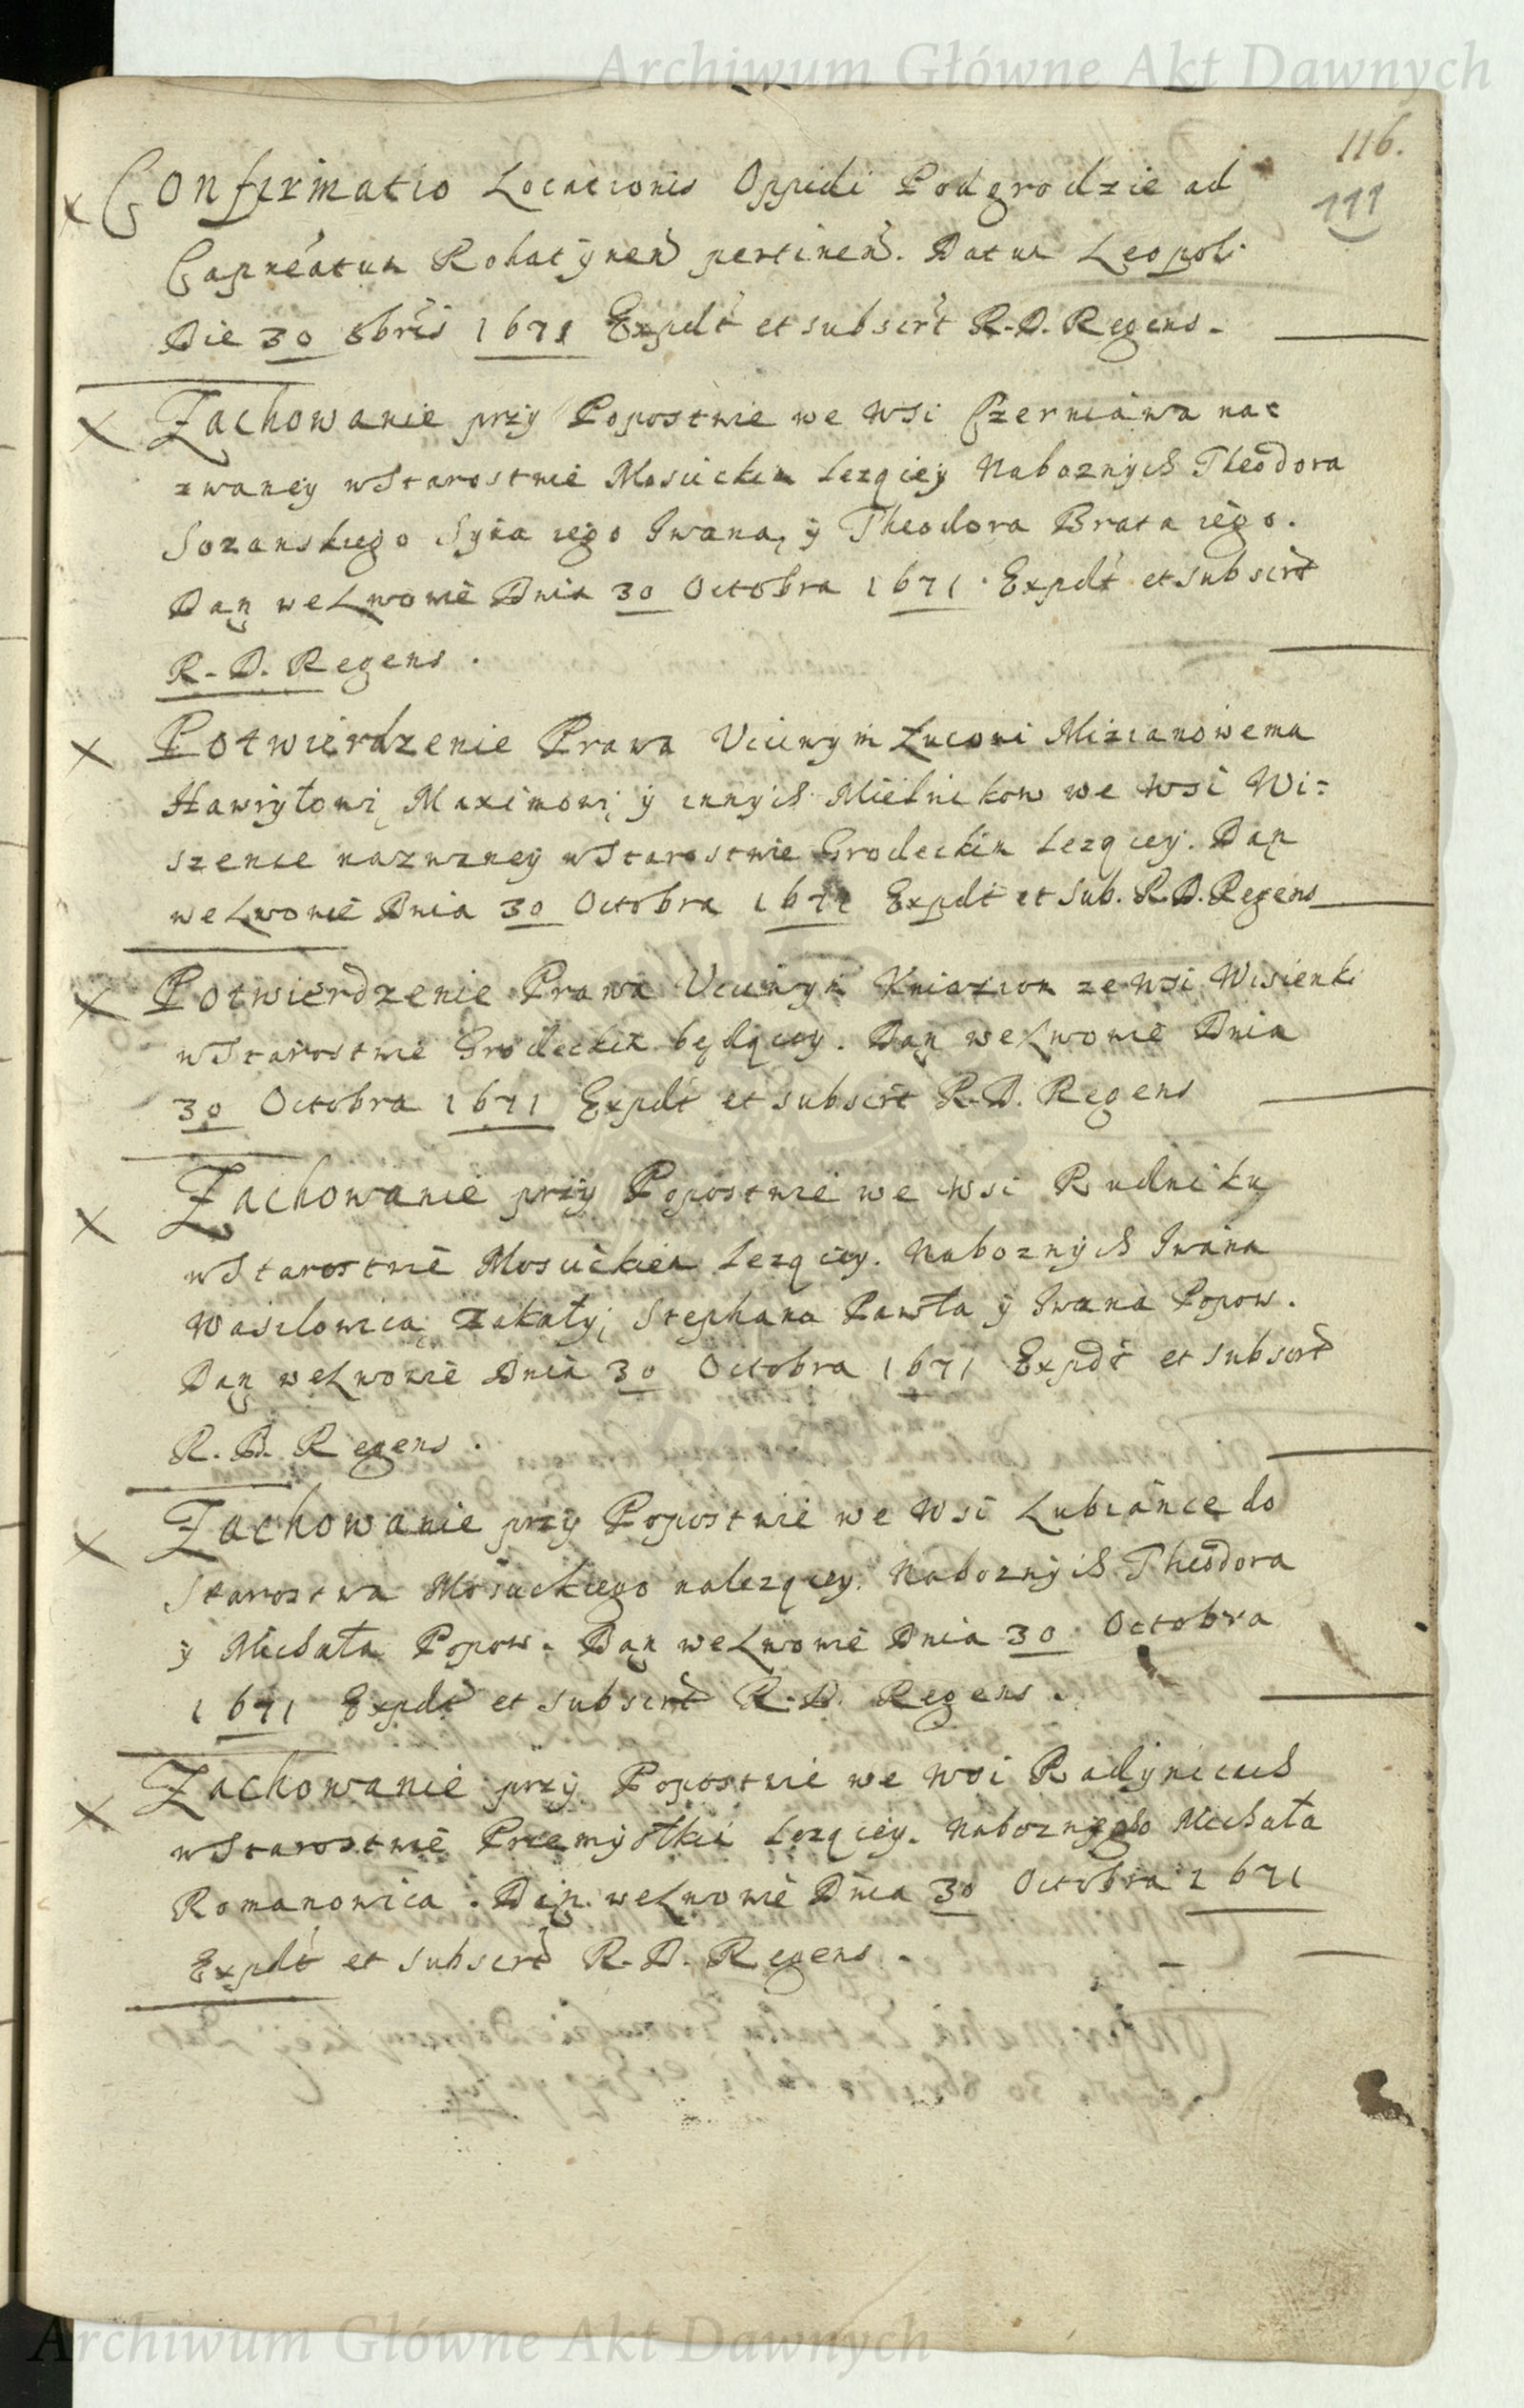 Archiwum Główne Akt Dawnych
116.
111
Confirmatio Locationis Oppidi Podgrodzie ad
Capneatum Rohatÿnen̄ pertinen̄. Datum Leopoli
Die 30 8bris 1671 Expdt et subscrt R.D. Regens.
Zachowanie przÿ Popostwie we Wsi Czerniawa na=
zwaneÿ w Starostwie Mościckim Lezącieÿ Naboznÿch Theodora
Sozanskiego Sÿna iego Iwana, ÿ Theodora Brata iego.
Dan we Lwowie Dnia 30 Octobra 1671. Expdt et subscrt
R.D. Regens.
Potwierdzenie Prawa Uciwym Lucowi Misianowemu
Hawrÿłowi, Maximowi, ÿ innÿch Mielnikow we Wsi Wi=
szence nazwaneÿ w Starostwie Grodeckim Lezącey. Dan
we Lwowie Dnia 30 Octobra 1671 Expdt et Sub. R.D. Regens
Potwierdzenie Prawa Uciwÿm Kniaziom ze Wsi Wisienki
w Starostwie Grodeckim będącey. Dan we Lwowie Dnia
30 Octobra 1671 Expdt et subscrt R.D. Regens
Zachowanie przÿ Popostwie we Wsi Rudniku
w Starostwie Mościckiem Lezącey. Naboznÿch Iwana
Wasilowica, Zakałÿ, Stephana Pawła ÿ Iwana Popow.
Dan we Lwowie Dnia 30 Octobra 1671 Expdt et subscrt
R.D. Regens.
Zachowanie przÿ Popostwie we Wsi Lubiance do
Starostwa Mościckiego nalezącey. Naboznÿch Theodora
ÿ Michała Popow. Dan we Lwowie Dnia 30 Octobra
1671 Expdt et subscrt R.D. Regens.
Zachowanie przÿ Popostwie we Wsi Radÿnicach
w Starostwie Przemÿślkiė Lezącėy. Naboznego Michała
Romanowica. Dan we Lwowie Dnia 30 Octobra 1671
Expdt et subscrt R.D. Regens.
Archiwum Główne Akt Dawnych